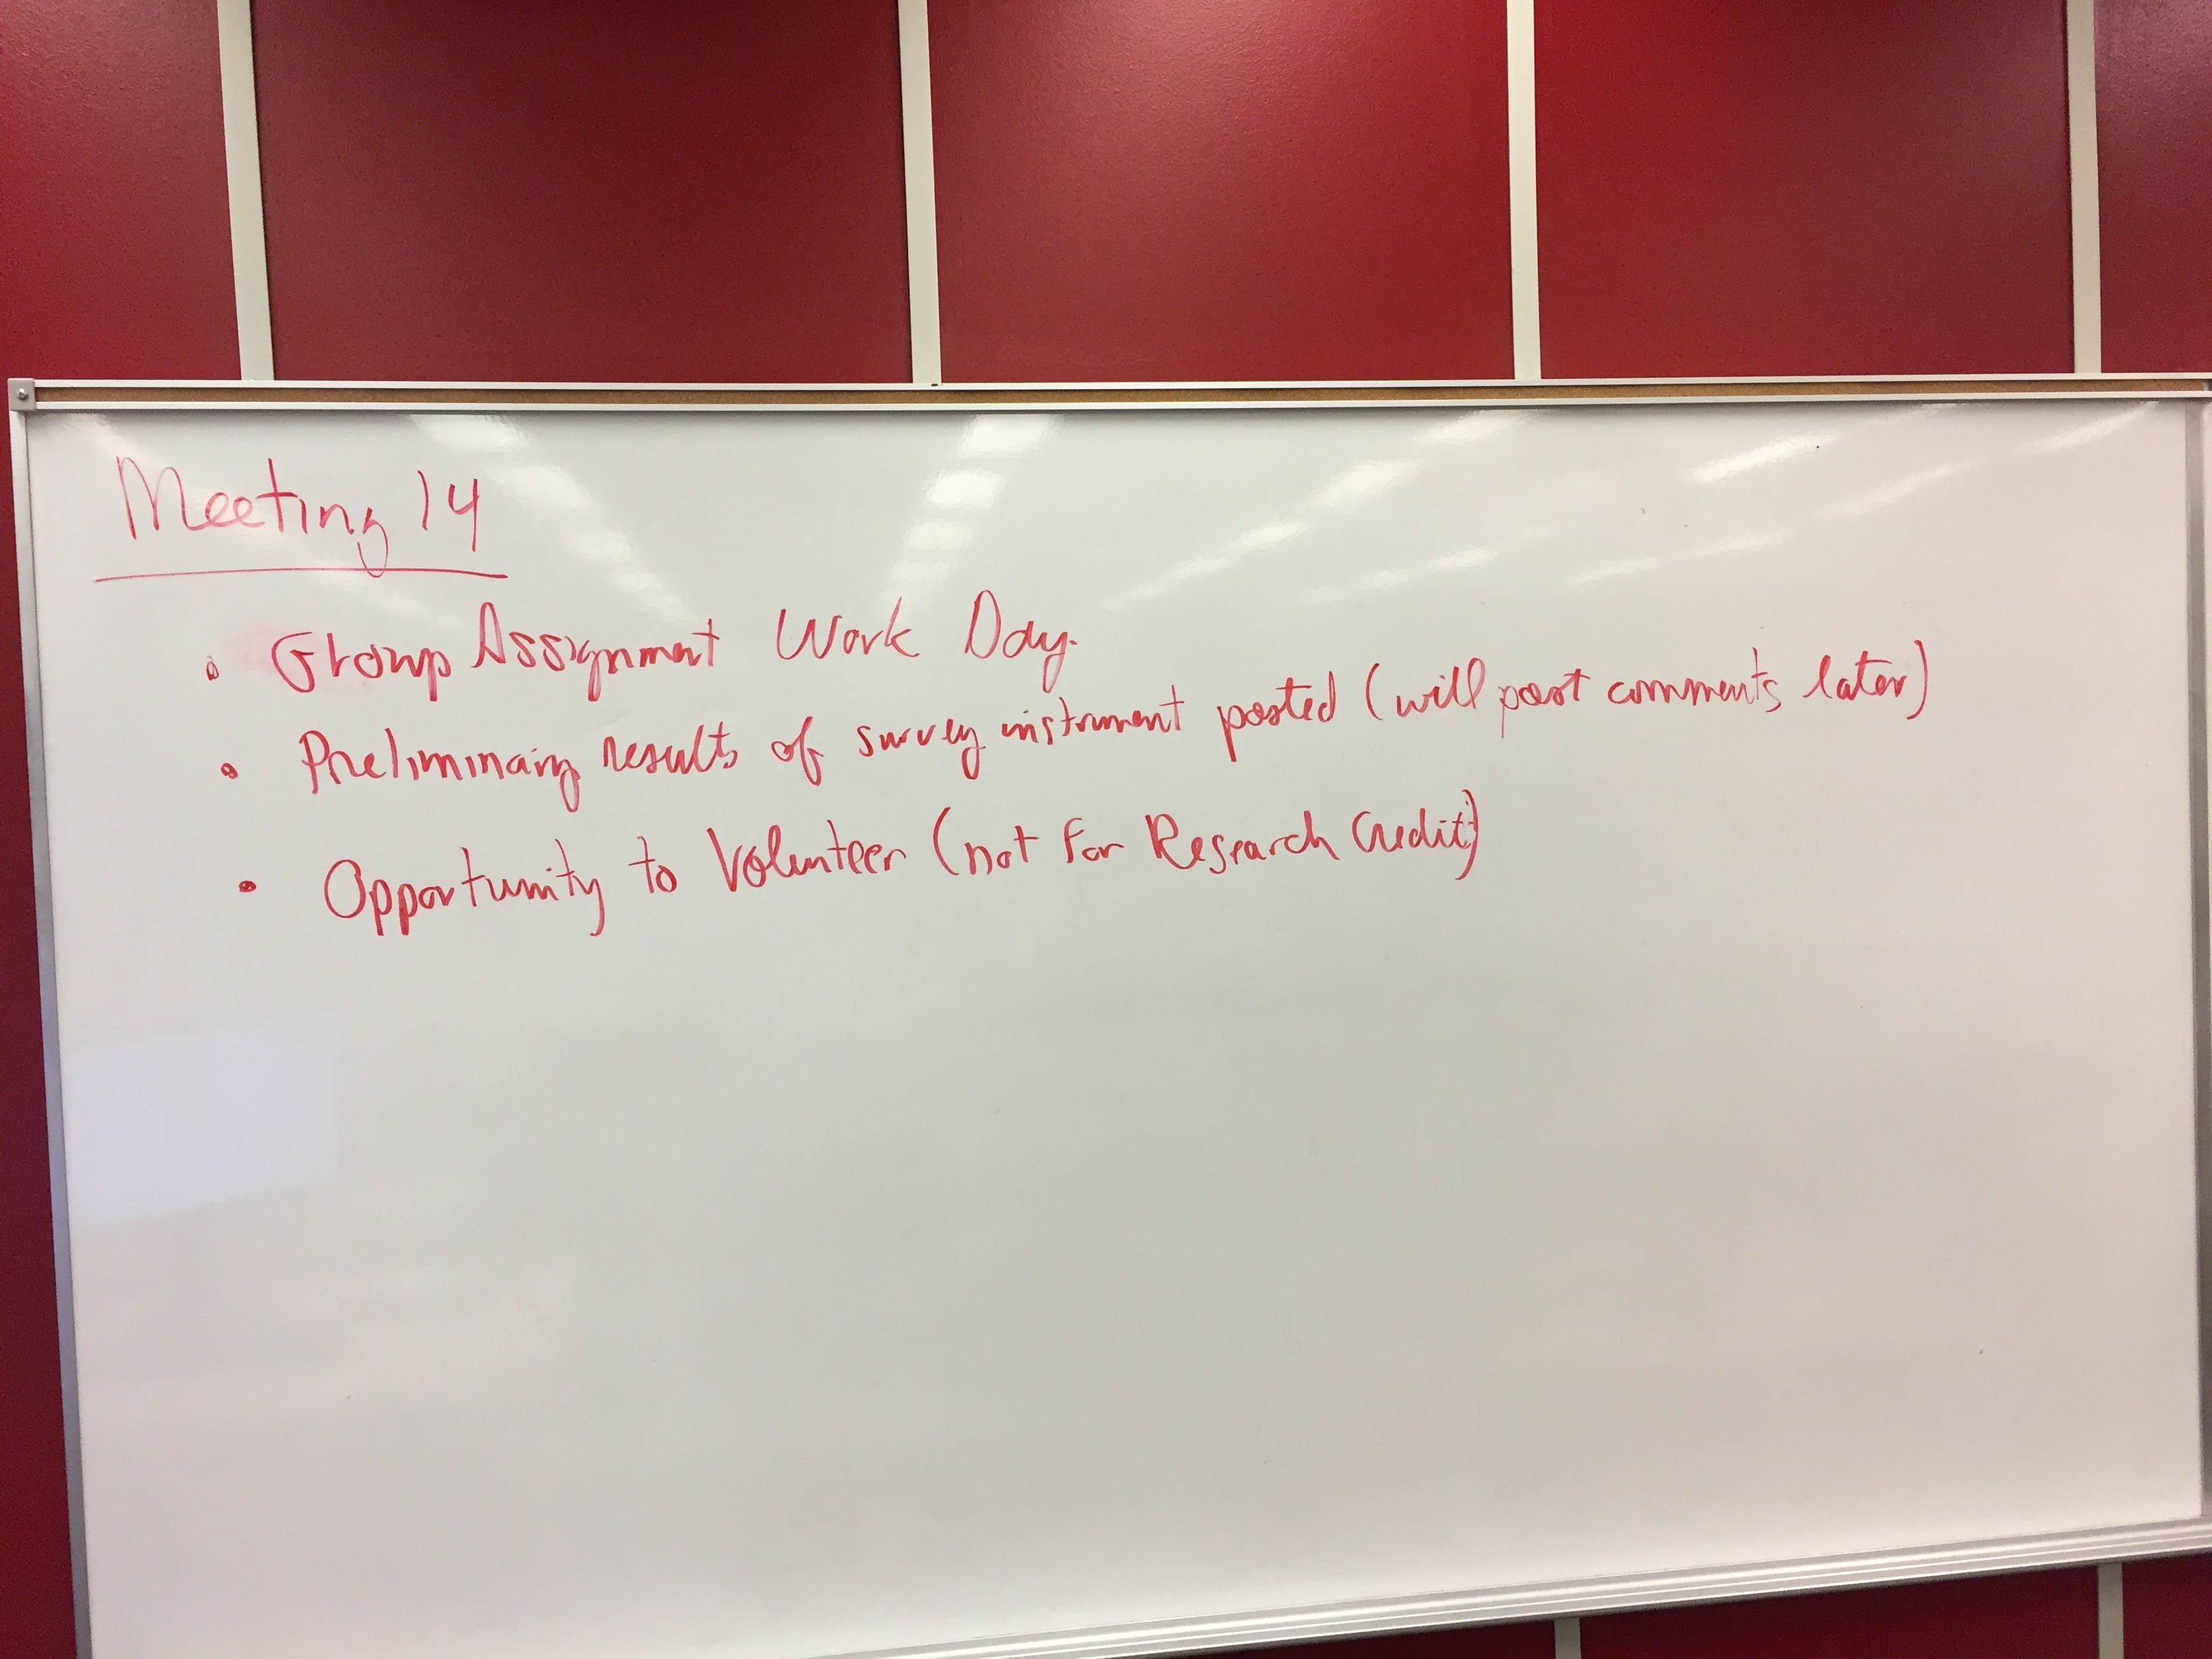 Meeting 14
• Group Assignment Work Day.
• Preliminary results of survey instrument posted (will post comments later)
• Opportunity to Volunteer (not for Research Credit)